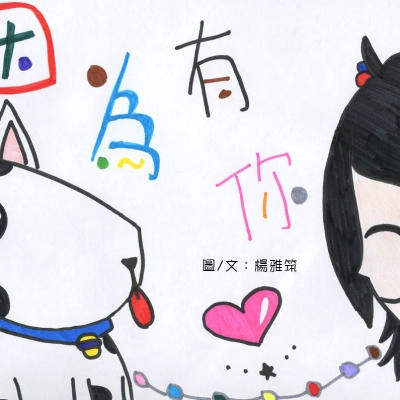 因為有你
圖/文：楊雅筑